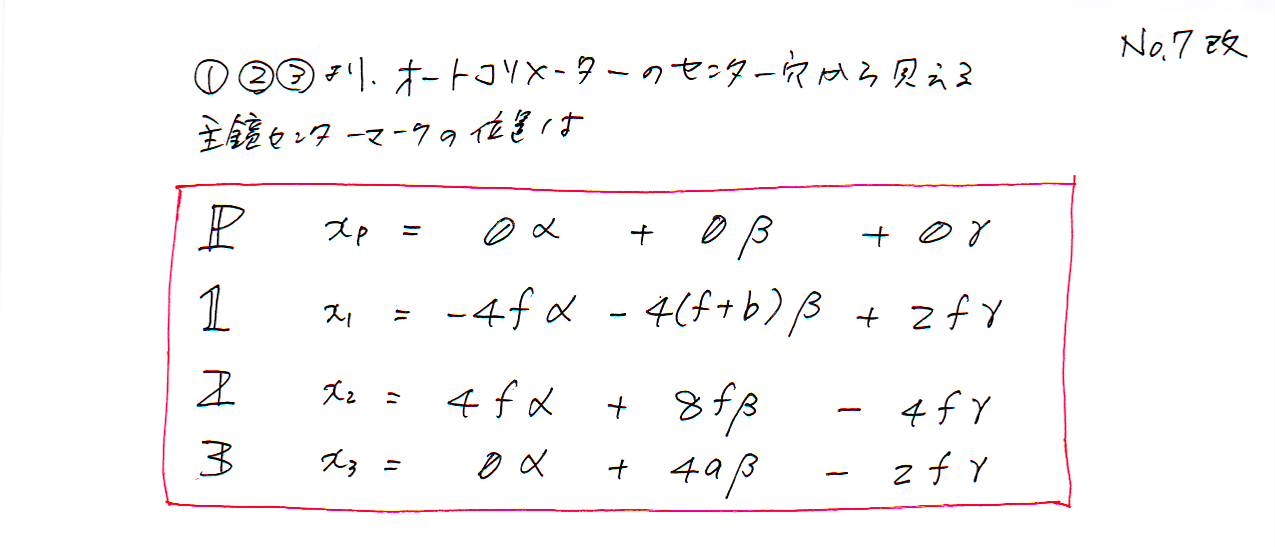 No.7改
①②③より、オートコリメーターのセンター穴から見える
主鏡センターマークの位置は
P xₚ = 0α + 0β + 0γ
1 x₁ = -4fα - 4(f+b)β + 2fγ
2 x₂ = 4fα + 8fβ - 4fγ
3 x₃ = 0α + 4aβ - 2fγ